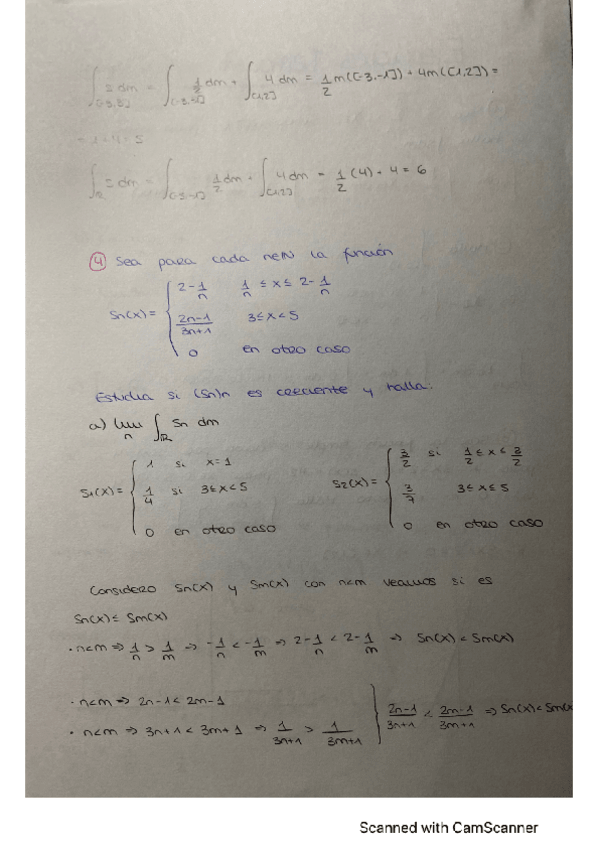 ∫ dm = ∫ 1/2 dm + ∫(1,2] 4 dm = 1/2 m([-3,-1]) + 4m((1,2]) =
= 1+4 = 5
∫ dm = ∫ 1/2 dm + ∫(1,2] 4 dm = 1/2 (4) + 4 = 6
④ Sea para cada n∈ℕ la función
Sn(x) = { 2 - 1/n   1/n ≤ x ≤ 2 - 1/n
2n-1/3n+1   3≤x<5
0   en otro caso
Estudia si (Sn)n es creciente y halla:
a) lim n ∫ℝ Sn dm
S1(x) = { 1 si x=1
1/4 si 3≤x<5
0 en otro caso
S2(x) = { 3/2 si 1/2 ≤ x ≤ 3/2
3/7   3≤x≤5
0 en otro caso
Considero Sn(x) y Sm(x) con n<m veamos si es
Sn(x) ≤ Sm(x)
· n<m ⇒ 1/n > 1/m ⇒ -1/n < -1/m ⇒ 2 - 1/n < 2 - 1/m ⇒ Sn(x) < Sm(x)
· n<m ⇒ 2n-1 < 2m-1
· n<m ⇒ 3n+1 < 3m+1 ⇒ 1/3n+1 > 1/3m+1
} 2n-1/3n+1 < 2m-1/3m+1 ⇒ Sn(x) < Sm(x
Scanned with CamScanner